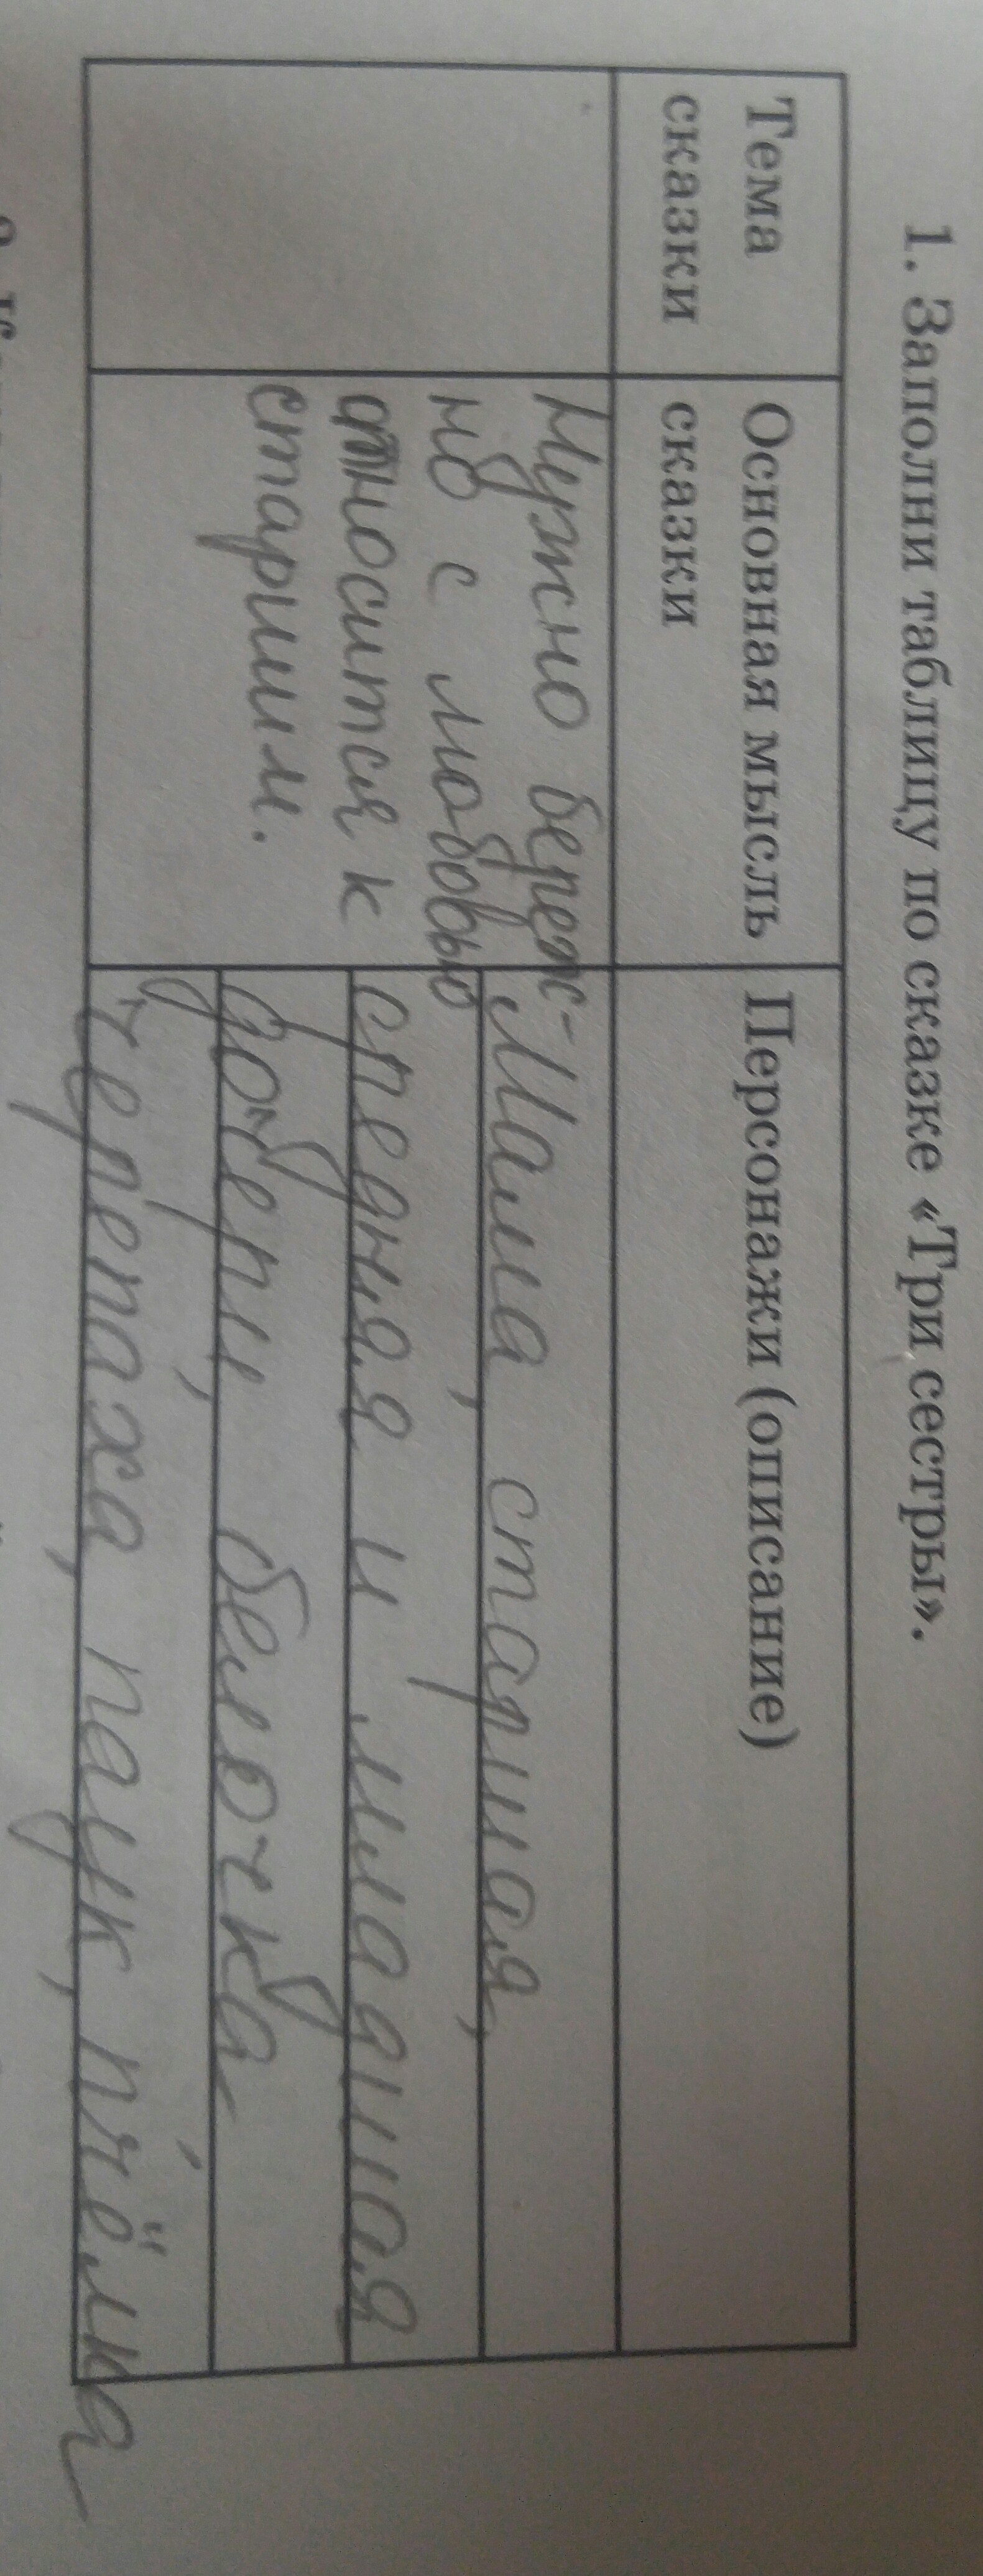 1. Заполни таблицу по сказке «Три сестры».
Тема
сказки
Основная мысль
сказки
Персонажи (описание)
Нужно береж-
но с любовью
относится к
старшим.
Мама, старшая,
средняя и младшая
дочери, белочка
черепаха, паук, пчёлка